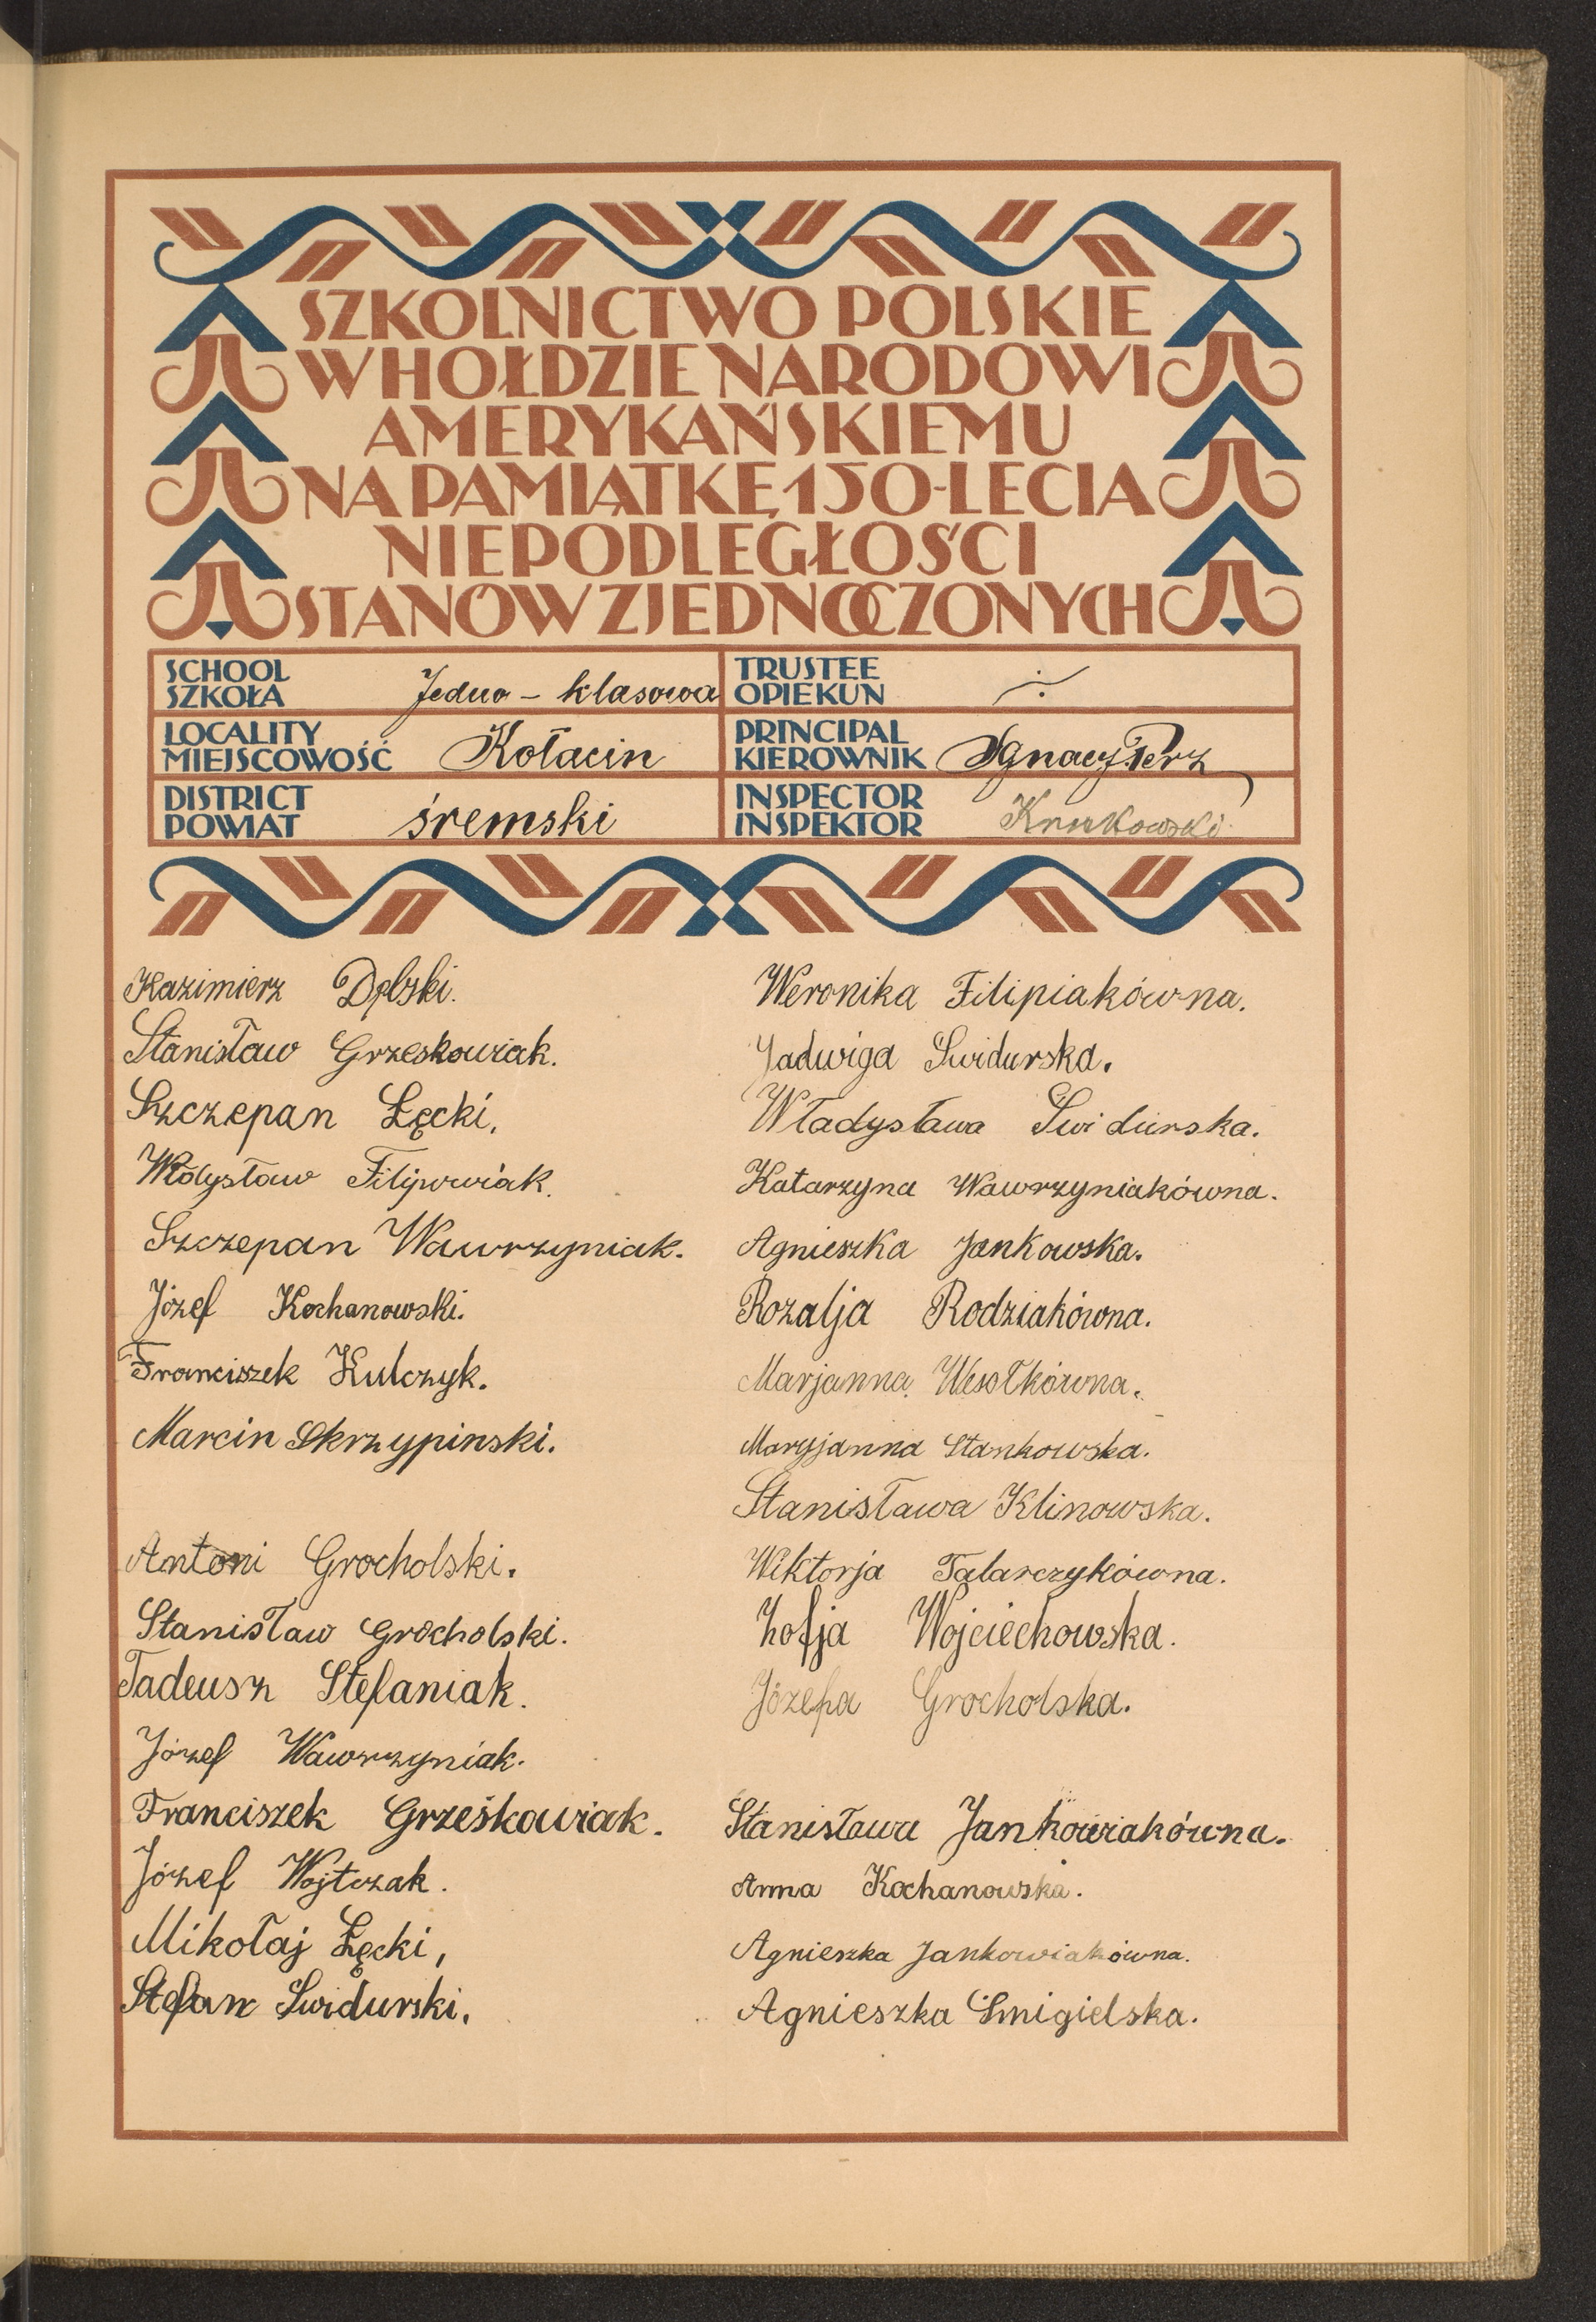 SZKOLNICTWO POLSKIE
W HOŁDZIE NARODOWI
AMERYKAŃSKIEMU
NA PAMIĄTKĘ 150-LECIA
NIEPODLEGŁOŚCI
STANÓW ZJEDNOCZONYCH
SCHOOL
SZKOŁA
Jedno – klasowa
TRUSTEE
OPIEKUN
LOCALITY
MIEJSCOWOŚĆ
Kołacin
PRINCIPAL
KIEROWNIK
Ignacy Perz
DISTRICT
POWIAT
śremski
INSPECTOR
INSPEKTOR
Krukowski
Kazimierz Dębski.
Stanisław Grzeskowiak.
Szczepan Łęcki.
Filipowiak.
Szczepan Wawrzyniak.
Józef Kochanowski.
Franciszek Kulczyk.
Marcin Skrzypinski.
Antoni Grocholski.
Stanisław Grocholski.
Tadeusz Stefaniak.
Józef Wawrzyniak.
Franciszek Grześkowiak.
Józef Wojtczak.
Mikołaj Łęcki,
Stefan Swidurski.
Weronika Filipiakówna.
Jadwiga Swidurska.
Władysława Swidurska.
Katarzyna Wawrzyniakówna.
Agnieszka Jankowska.
Rozalja Rodziakówna.
Marjanna Wesołkówna.
Maryjanna Stankowska.
Stanisława Klinowska.
Wiktorja Talarczykówna.
Zofja Wojciechowska.
Józefa Grocholska.
Stanisława Jankowiakówna.
Anna Kochanowska.
Agnieszka Jankowiakówna.
Agnieszka Smigielska.